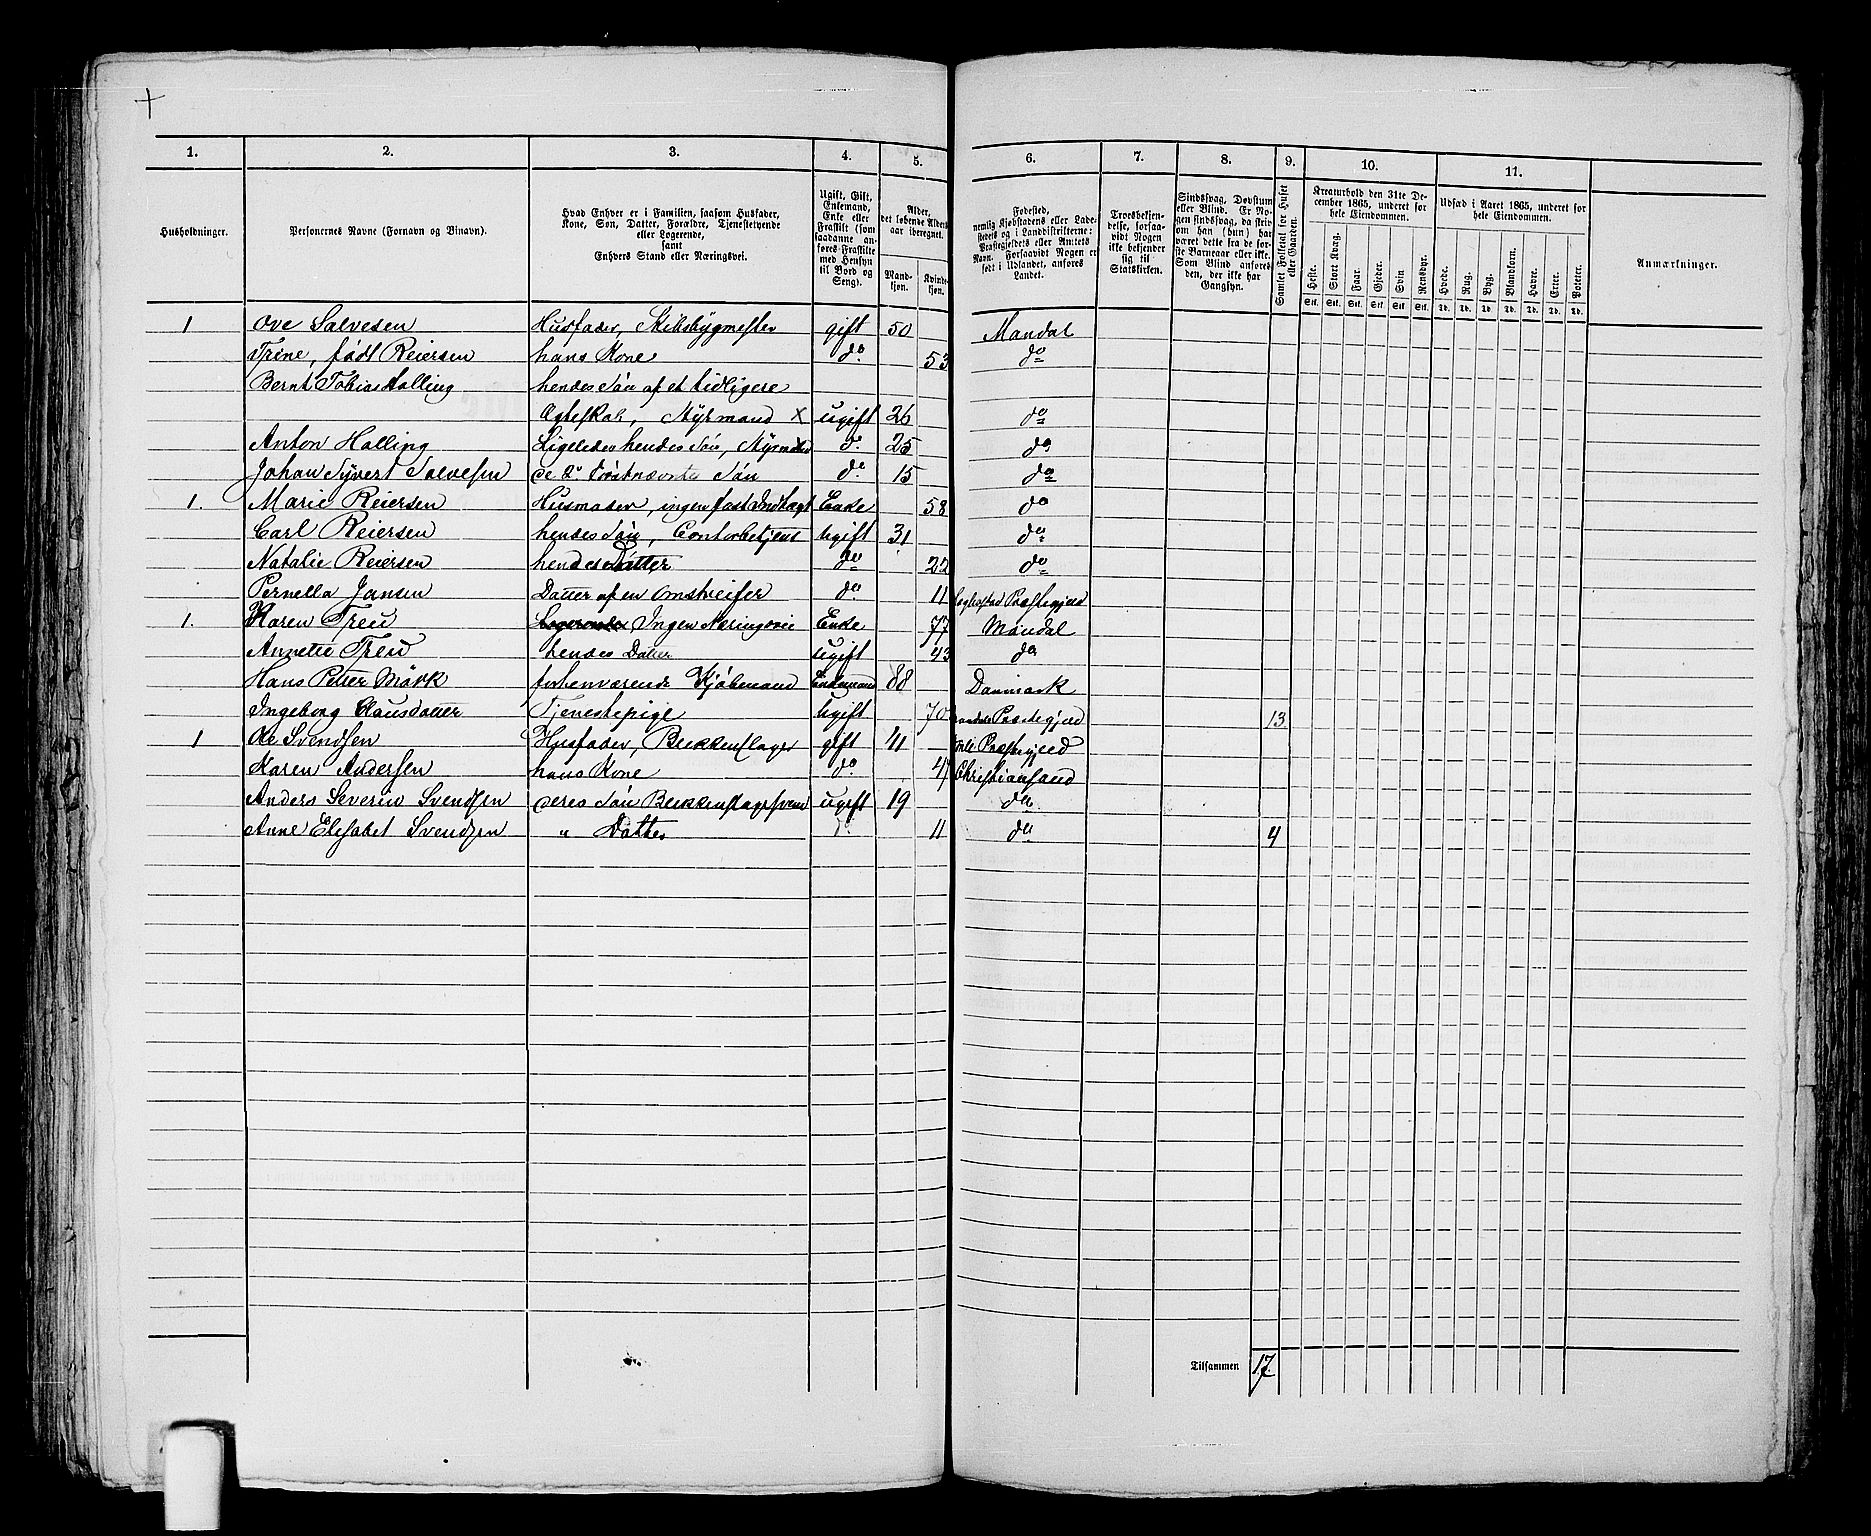 1. 2. 3. 4. 5. 6. 7. 8. 9. 10. 11.
Husholdninger.
Personernes Navne (Fornavn og Binavn).
Hvad Enhver er i Familien, saasom Husfader,
Kone, Søn, Datter, Forældre, Tjenestetyende
eller Logerende,
samt
Enhvers Stand eller Næringsvei.
Ugift, Gift,
Enkemand,
Enke eller
Fraskilt (som
saadanne an-
føres Fraskilte
med Hensyn
til Bord og
Seng).
Alder,
det løbende Alders-
aar iberegnet.
Mand-
kjøn.
Kvinde-
kjøn.
Fødested,
nemlig Kjøbstadens eller Lade-
stedets og i Landdistrikterne:
Præstegjeldets eller Amtets
Navn. Forsaavidt Nogen er
født i Udlandet, anføres
Landet.
Troesbekjen-
delse, forsaa-
vidt Nogen
ikke bekjender
sig til
Statskirken.
Sindssvag, Døvstum
eller Blind. Er No-
gen sindssvag, da skriv
om han (hun) har
været dette fra de før-
ste Barneaar eller ikke.
Som Blind anføres
den, der ikke har
Gangsyn.
Samlet Folketal for Huset
eller Gaarden.
Kreaturhold den 31te De-
cember 1865, underet for
hele Eiendommen.
Heste. Stort Kvæg. Faar. Gjeder. Svin Rensdyr.
Stk. Stk. Stk. Stk. Stk. Stk.
Udsæd i Aaret 1865, underet for
hele Eiendommen.
Hvede. Rug. Byg. Blandkorn. Havre. Erter. Poteter.
Td. Td. Td. Td. Td. Td. Td.
Anmærkninger.
1 Ove Salvesen Husfader, Skibsbygmester gift 50 Mandal
Trine, født Reiersen hans Kone do 53 do
Bernt Tobias Halling hendes Søn af et tidligere
Ægteskab, Styrmand x ugift 26 do
Anton Halling Ligeledes hendes Søn, Styrmand do 25 do
Johan Syvert Salvesen de 2de Førstnævntes Søn do 15 do
1. Marie Reiersen Husmoder, ingen fast Indtægt Enke 58 do
Carl Reiersen hendes Søn, Contorbetjent Ugift 31 do
Natalie Reiersen hendes Datter do 22 do
Pernella Jansen Datter af en Omstreifer do 11 Præstegjeld
1. Karen Treu Logerende Ingen Næringsvei Enke 77 Mandal
Annette Treu hendes Datter ugift 43 do
Hans Petter Mörk forhenværende Kjøbmand Enkemand 88 Danmark
Ingeborg Clausdatter Tjenestepige Ugift 70 Præstegjeld 13
1 Ole Svendsen Husfader, Bukkenslager gift 41 Præstegjeld
Karen Andersen hans Kone do 47 Christiansand
Anders Severin Svendsen deres Søn Bukkenslagersvend ugift 19 do
Anne Elisabet Svendsen " Datter do 11 do 4
Tilsammen 17.